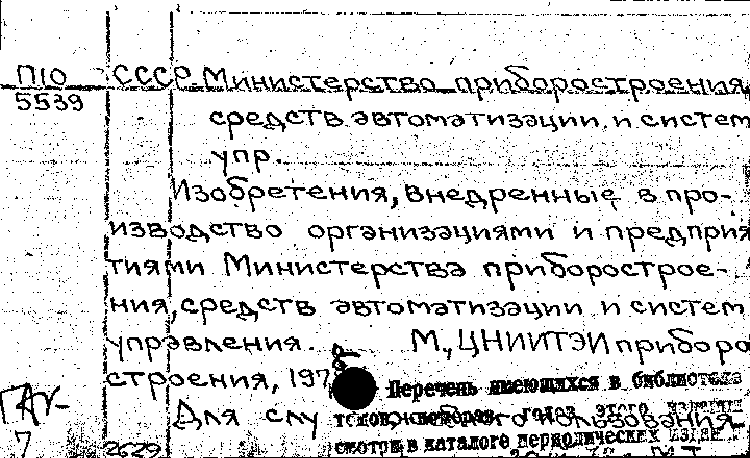 П10 СССР. Министерство приборостроения,
5539 средств автоматизации и систем
упр.
Изобретения, внедренные в про-
изводство организациями и предприя
тиями Министерства приборострое-
ния, средств автоматизации и систем
управления. М., ЦНИИТЭИ приборо
строения, 197
Перечень имеющихся в библиотеке
Для слу пользования
томов, номеров, годов этого издания
7 смотри в каталоге периодических издан.
2629